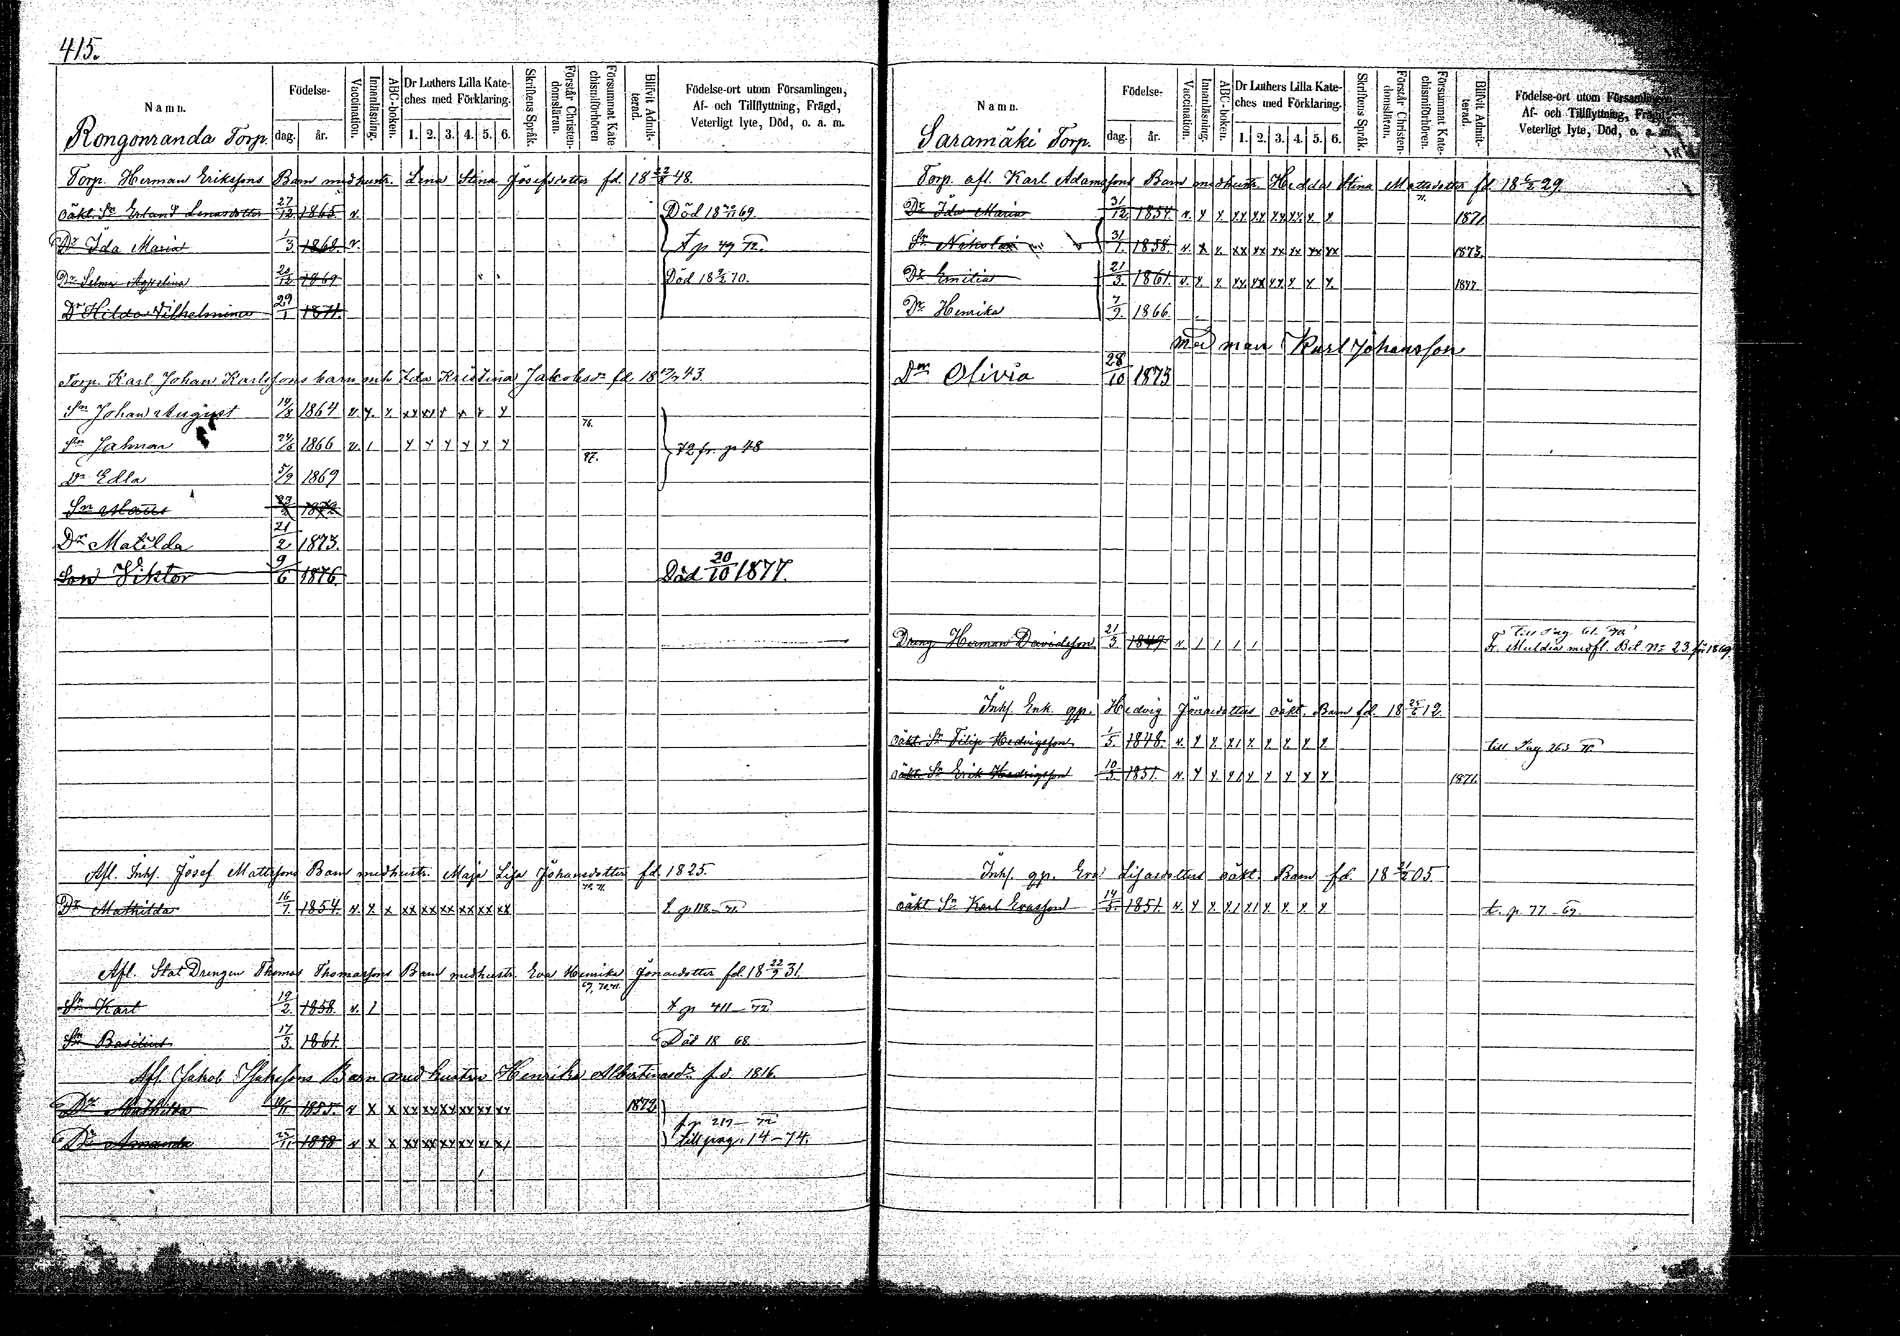 415.
Namn.
Födelse-
dag. år.
Vaccination.
Innanläsning.
ABC-boken.
Dr Luthers Lilla Kate-
ches med Förklaring.
1. 2. 3. 4. 5. 6.
Skriftens Språk.
Förstår Christen-
domsläran.
Försummat Kate-
chismiförhören
Blifvit Admit-
terad.
Födelse-ort utom Församlingen,
Af- och Tillflyttning, Frägd,
Veterligt lyte, Död, o. a. m.
Rongonranda Torp.
Torp. Herman Erikssons Barn med hustr. Lena Stina Josefsdotter fd. 18 22/8 48.
oäkt. Sn Erland Lenasdotter 27/12 1865 v. Död 18 69.
Dr Ida Maria 1/3 1868. v. t p 49 72.
Dr Selma 1869 Död 18 70.
Dr Hilda Vilhelmina 29/1 1871.
Torp. Karl Johan Karlssons barn mh Ida Kristina Jakobsdr fd. 18 43.
Sn Johan August 14/8 1864 v. x. x xx xx x x x x 76.
Sn Jalmar 24/6 1866 v. 1 x x x x x x 87. 72 fr. p 48
Dr Edla 5/9 1869
Sn 1872
Dr Matilda 21/2 1873.
Son Viktor 9/6 1876 Död 20/10 1877.
Afl. Inh. Josef Mattssons Barn med hustr. Maja Lisa Johansdotter fd. 1825.
70. 71.
Dr Mathilda 16/7. 1854. v. x x xx xx xx xx xx xx t. p 118 - 71.
Afl. Stat Drengen Thomas Thomassons Barn med hustr. Eva Henrika Jonasdotter fd. 18 22/9 31.
69, 70, 71.
Sn Karl 19/2. 1858. v. 1 t p 411 - 72
Sn Basilius 17/3. 1861. Död 18 68.
Afl. Jakob Isakssons Barn med hustru Henrika Albertinasdr f.d. 1816.
Dr Mathilda 1855. v x x xx xx xx xx xx xx 1872
t p 217 - 72
Dr Amanda 25/11 1858 v x x xx xx xx xx x x till pag. 14 - 74.
Namn.
Födelse-
dag. år.
Vaccination.
Innanläsning.
ABC-boken.
Dr Luthers Lilla Kate-
ches med Förklaring.
1. 2. 3. 4. 5. 6.
Skriftens Språk.
Förstår Christen-
domsläran.
Försummat Kate-
chismiförhören.
Blifvit Admit-
terad.
Födelse-ort utom Församlingen
Af- och Tillflyttning, Frägd,
Veterligt lyte, Död, o. a. m.
Saramäki Torp.
Torp. afl. Karl Adamssons Barn med hustr. Hedda Stina Mattsdotter fd. 18 29.
71.
Dr Ida Maria 31/12 1854. v. x x xx xx xx x x 1871
Sn Nikolai 31/1. 1858. v. x x. xx xx xx xx xx xx 1873.
Dr Emilia 21/3. 1861. v. x x xx xx xx x x x. 1877
Dr Henrika 7/9. 1866.
med man Karl Johansson
Dr Olivia 28/10 1873
Dreng Herman Davidsson 21/3. 1849 v. 1 1 1 1 till Pag 61. 70
Fr. Muldia med fl. Bet. No 23 för 1869
Inh. Enk. gp. Hedvig Jonasdotters oäkt. Barn fd. 18 25/2 12.
oäkt. Sn Filip Hedvigsson 1/5. 1848. v. x x. x1 x. x x x x till Pag 263 71
oäkt. Sn Erik Hedvigsson 10/3. 1851. v. x x. x1 x x x x x 1871.
Inh. gp. Eva Lisasdotters oäkt. Barn fd. 18 05.
oäkt Sn Karl Evasson 14/5. 1851. v. x x. x1 x1 x. x. x. x t. p. 77 - 69.